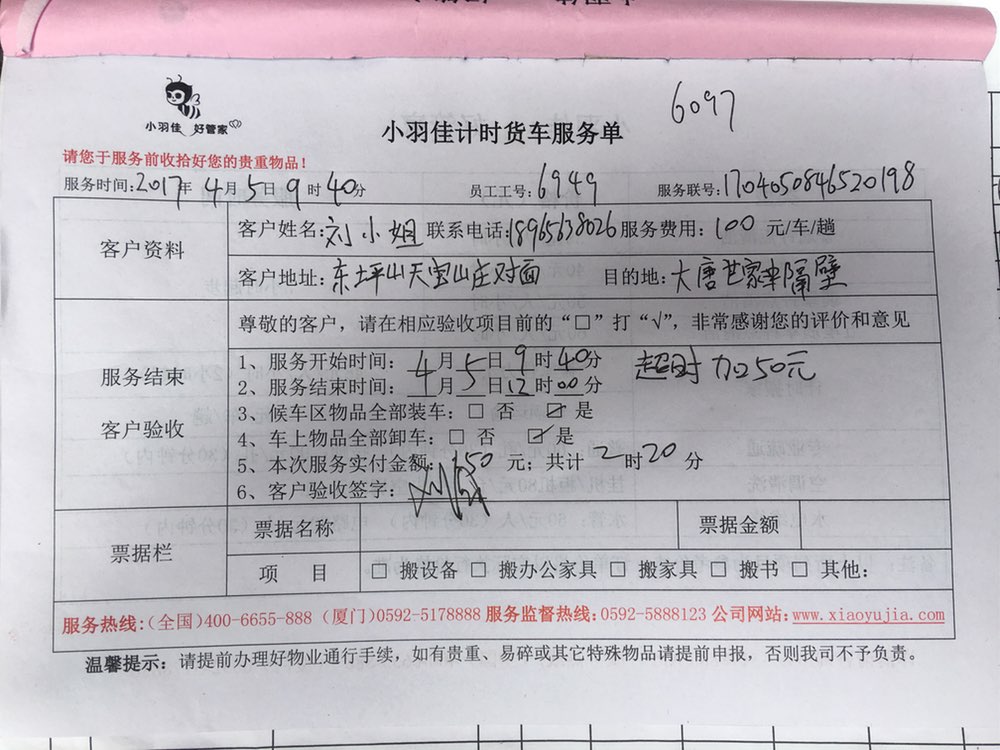 6097
小羽佳 好管家
小羽佳计时货车服务单
请您于服务前收拾好您的贵重物品！
服务时间:2017年 4月 5日 9时 40分 员工工号:6949 服务联号:1704050846520198
客户资料
客户姓名:刘小姐 联系电话:18965638026 服务费用:100 元/车/趟
客户地址:东坪山天宝山庄对面 目的地:大唐世家隔壁
尊敬的客户，请在相应验收项目前的“□”打“√”，非常感谢您的评价和意见
服务结束
客户验收
1、服务开始时间: 4月 5日 9时 40分 超时加50元
2、服务结束时间: 4月 5日 12时 00分
3、候车区物品全部装车: □ 否 ☑ 是
4、车上物品全部卸车: □ 否 ☑ 是
5、本次服务实付金额: 150 元；共计 2时 20分
6、客户验收签字:
票据栏
票据名称 票据金额
项 目 □ 搬设备 □ 搬办公家具 □ 搬家具 □ 搬书 □ 其他:
服务热线:(全国)400-6655-888 (厦门)0592-5178888 服务监督热线:0592-5888123 公司网站:www.xiaoyujia.com
温馨提示: 请提前办理好物业通行手续，如有贵重、易碎或其它特殊物品请提前申报，否则我司不予负责。